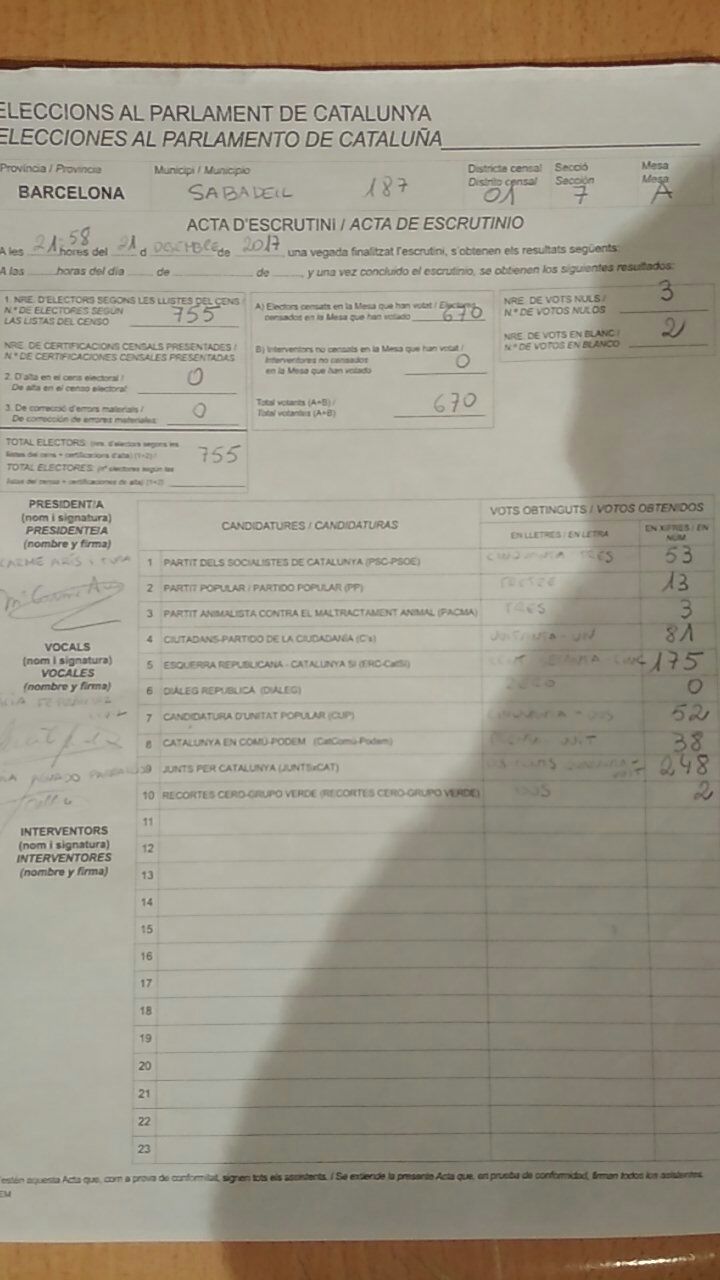 ELECCIONS AL PARLAMENT DE CATALUNYA
ELECCIONES AL PARLAMENTO DE CATALUÑA
Província / Provincia Municipi / Municipio Districte censal Secció Mesa
Distrito censal Sección Mesa
BARCELONA SABADELL 187 01 7 A
ACTA D'ESCRUTINI / ACTA DE ESCRUTINIO
A les 21:58 hores del 21 d DECEMBRE de 2017, una vegada finalitzat l'escrutini, s'obtenen els resultats següents:
A las horas del día de de , y una vez concluido el escrutinio, se obtienen los siguientes resultados:
1. NRE. D'ELECTORS SEGONS LES LLISTES DEL CENS /
N.º DE ELECTORES SEGÚN
LAS LISTAS DEL CENSO 755
NRE. DE CERTIFICACIONS CENSALS PRESENTADES /
N.º DE CERTIFICACIONES CENSALES PRESENTADAS
2. D'alta en el cens electoral /
De alta en el censo electoral: 0
3. De correcció d'errors materials /
De corrección de errores materiales: 0
TOTAL ELECTORS: (nre. d'electors segons les
llistes del cens + certificacions d'alta) (1+2) / 755
TOTAL ELECTORES: (nº electores según las
listas del censo + certificaciones de alta) (1+2)
A) Electors censats en la Mesa que han votat / Electores
censados en la Mesa que han votado 670
B) Interventors no censats en la Mesa que han votat /
Interventores no censados
en la Mesa que han votado 0
Total votants (A+B) /
Total votantes (A+B) 670
NRE. DE VOTS NULS /
N.º DE VOTOS NULOS 3
NRE. DE VOTS EN BLANC /
N.º DE VOTOS EN BLANCO 2
PRESIDENT/A
(nom i signatura)
PRESIDENTE/A
(nombre y firma)
CARME ARÍS I
VOCALS
(nom i signatura)
VOCALES
(nombre y firma)
INTERVENTORS
(nom i signatura)
INTERVENTORES
(nombre y firma)
CANDIDATURES / CANDIDATURAS VOTS OBTINGUTS / VOTOS OBTENIDOS
EN LLETRES / EN LETRA EN XIFRES / EN NÚM
1 PARTIT DELS SOCIALISTES DE CATALUNYA (PSC-PSOE) CINQUANTA TRES 53
2 PARTIT POPULAR / PARTIDO POPULAR (PP) TRETZE 13
3 PARTIT ANIMALISTA CONTRA EL MALTRACTAMENT ANIMAL (PACMA) TRES 3
4 CIUTADANS-PARTIDO DE LA CIUDADANÍA (C's) VUITANTA-UN 81
5 ESQUERRA REPUBLICANA - CATALUNYA SÍ (ERC-CatSí) CENT SETANTA-CINC 175
6 DIÀLEG REPUBLICÀ (DIÀLEG) ZERO 0
7 CANDIDATURA D'UNITAT POPULAR (CUP) CINQUANTA-DOS 52
8 CATALUNYA EN COMÚ-PODEM (CatComú-Podem) TRENTA-VUIT 38
9 JUNTS PER CATALUNYA (JUNTSxCAT) 248
10 RECORTES CERO-GRUPO VERDE (RECORTES CERO-GRUPO VERDE) DOS 2
11
12
13
14
15
16
17
18
19
20
21
22
23
estén aquesta Acta que, com a prova de conformitat, signen tots els assistents. / Se extiende la presente Acta que, en prueba de conformidad, firman todos los asistentes.